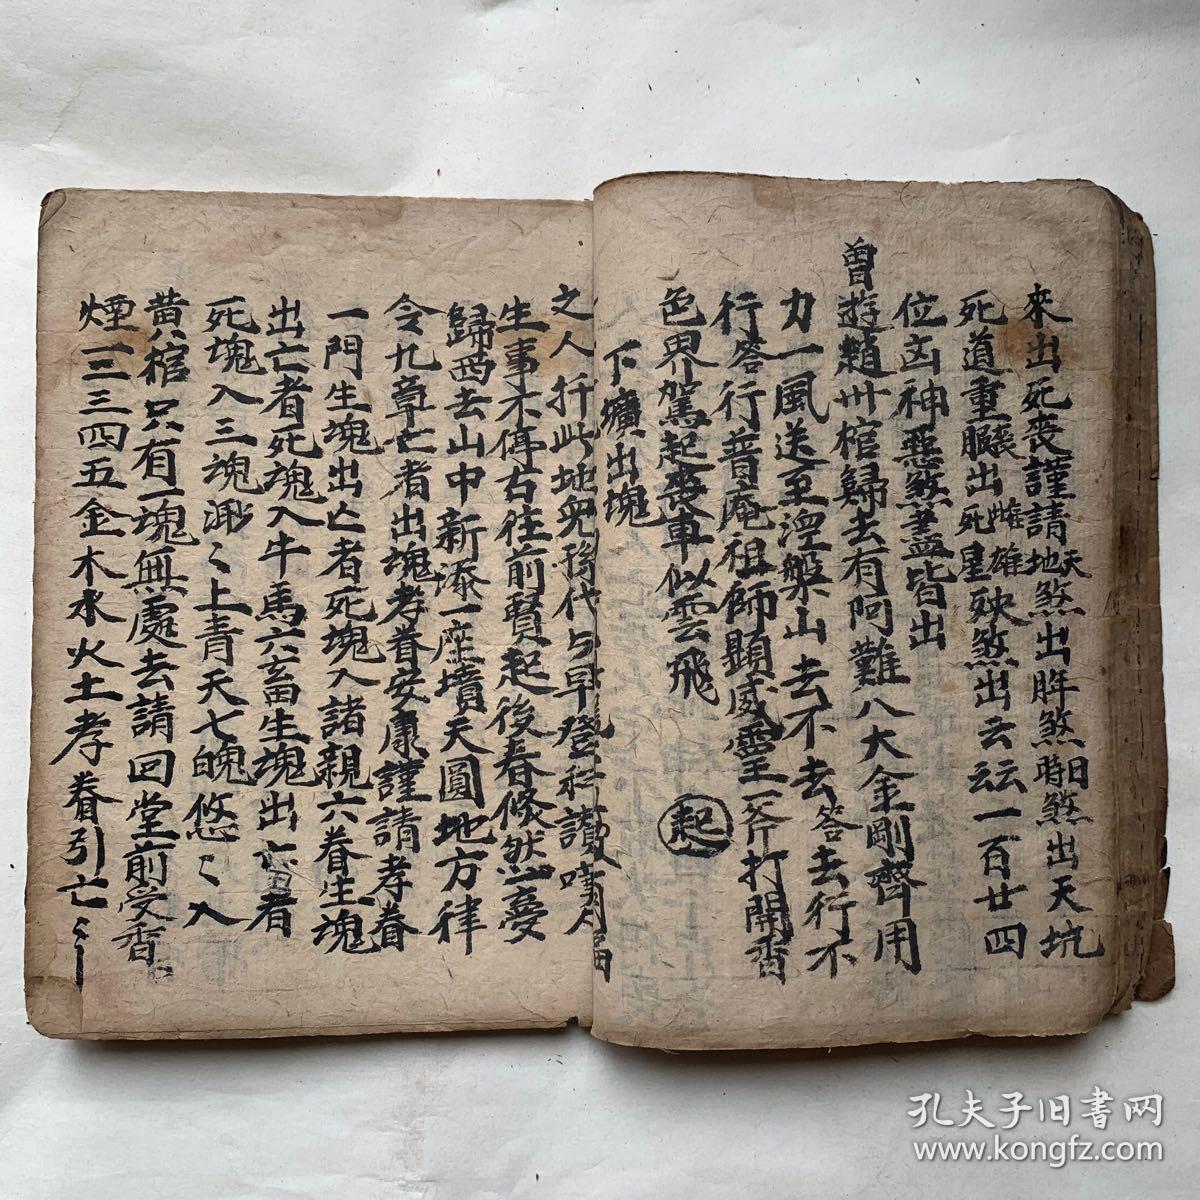 來出死喪謹請天地煞出年煞日時煞出天坑
死道重喪出雌雄死星殃煞出去云一百廿四
位凶神惡煞盖皆出
曾遊趙州棺歸去有阿難八大金剛齊用
力一風送至涅槃山去不去答去行不
行答行普庵祖師顯威靈一斧打開
色界駕起喪車似雲飛 起
下壙出塊
之人扦此地兒孫代与早登科讚
生事不停古往前賢起後春倏然一憂
歸西去山中新添一座墳天圓地方律
令九章亡者出塊孝眷安康謹請孝眷
一門生塊出亡者死塊入諸親六眷生塊
出亡者死塊入牛馬六畜生塊出亡者
死塊入三塊渺〻上青天七魄悠〻入
黄八棺只有一塊無處去請回堂前受香
煙一二三四五金木水火土孝眷引亡
孔夫子旧书网
www.kongfz.com